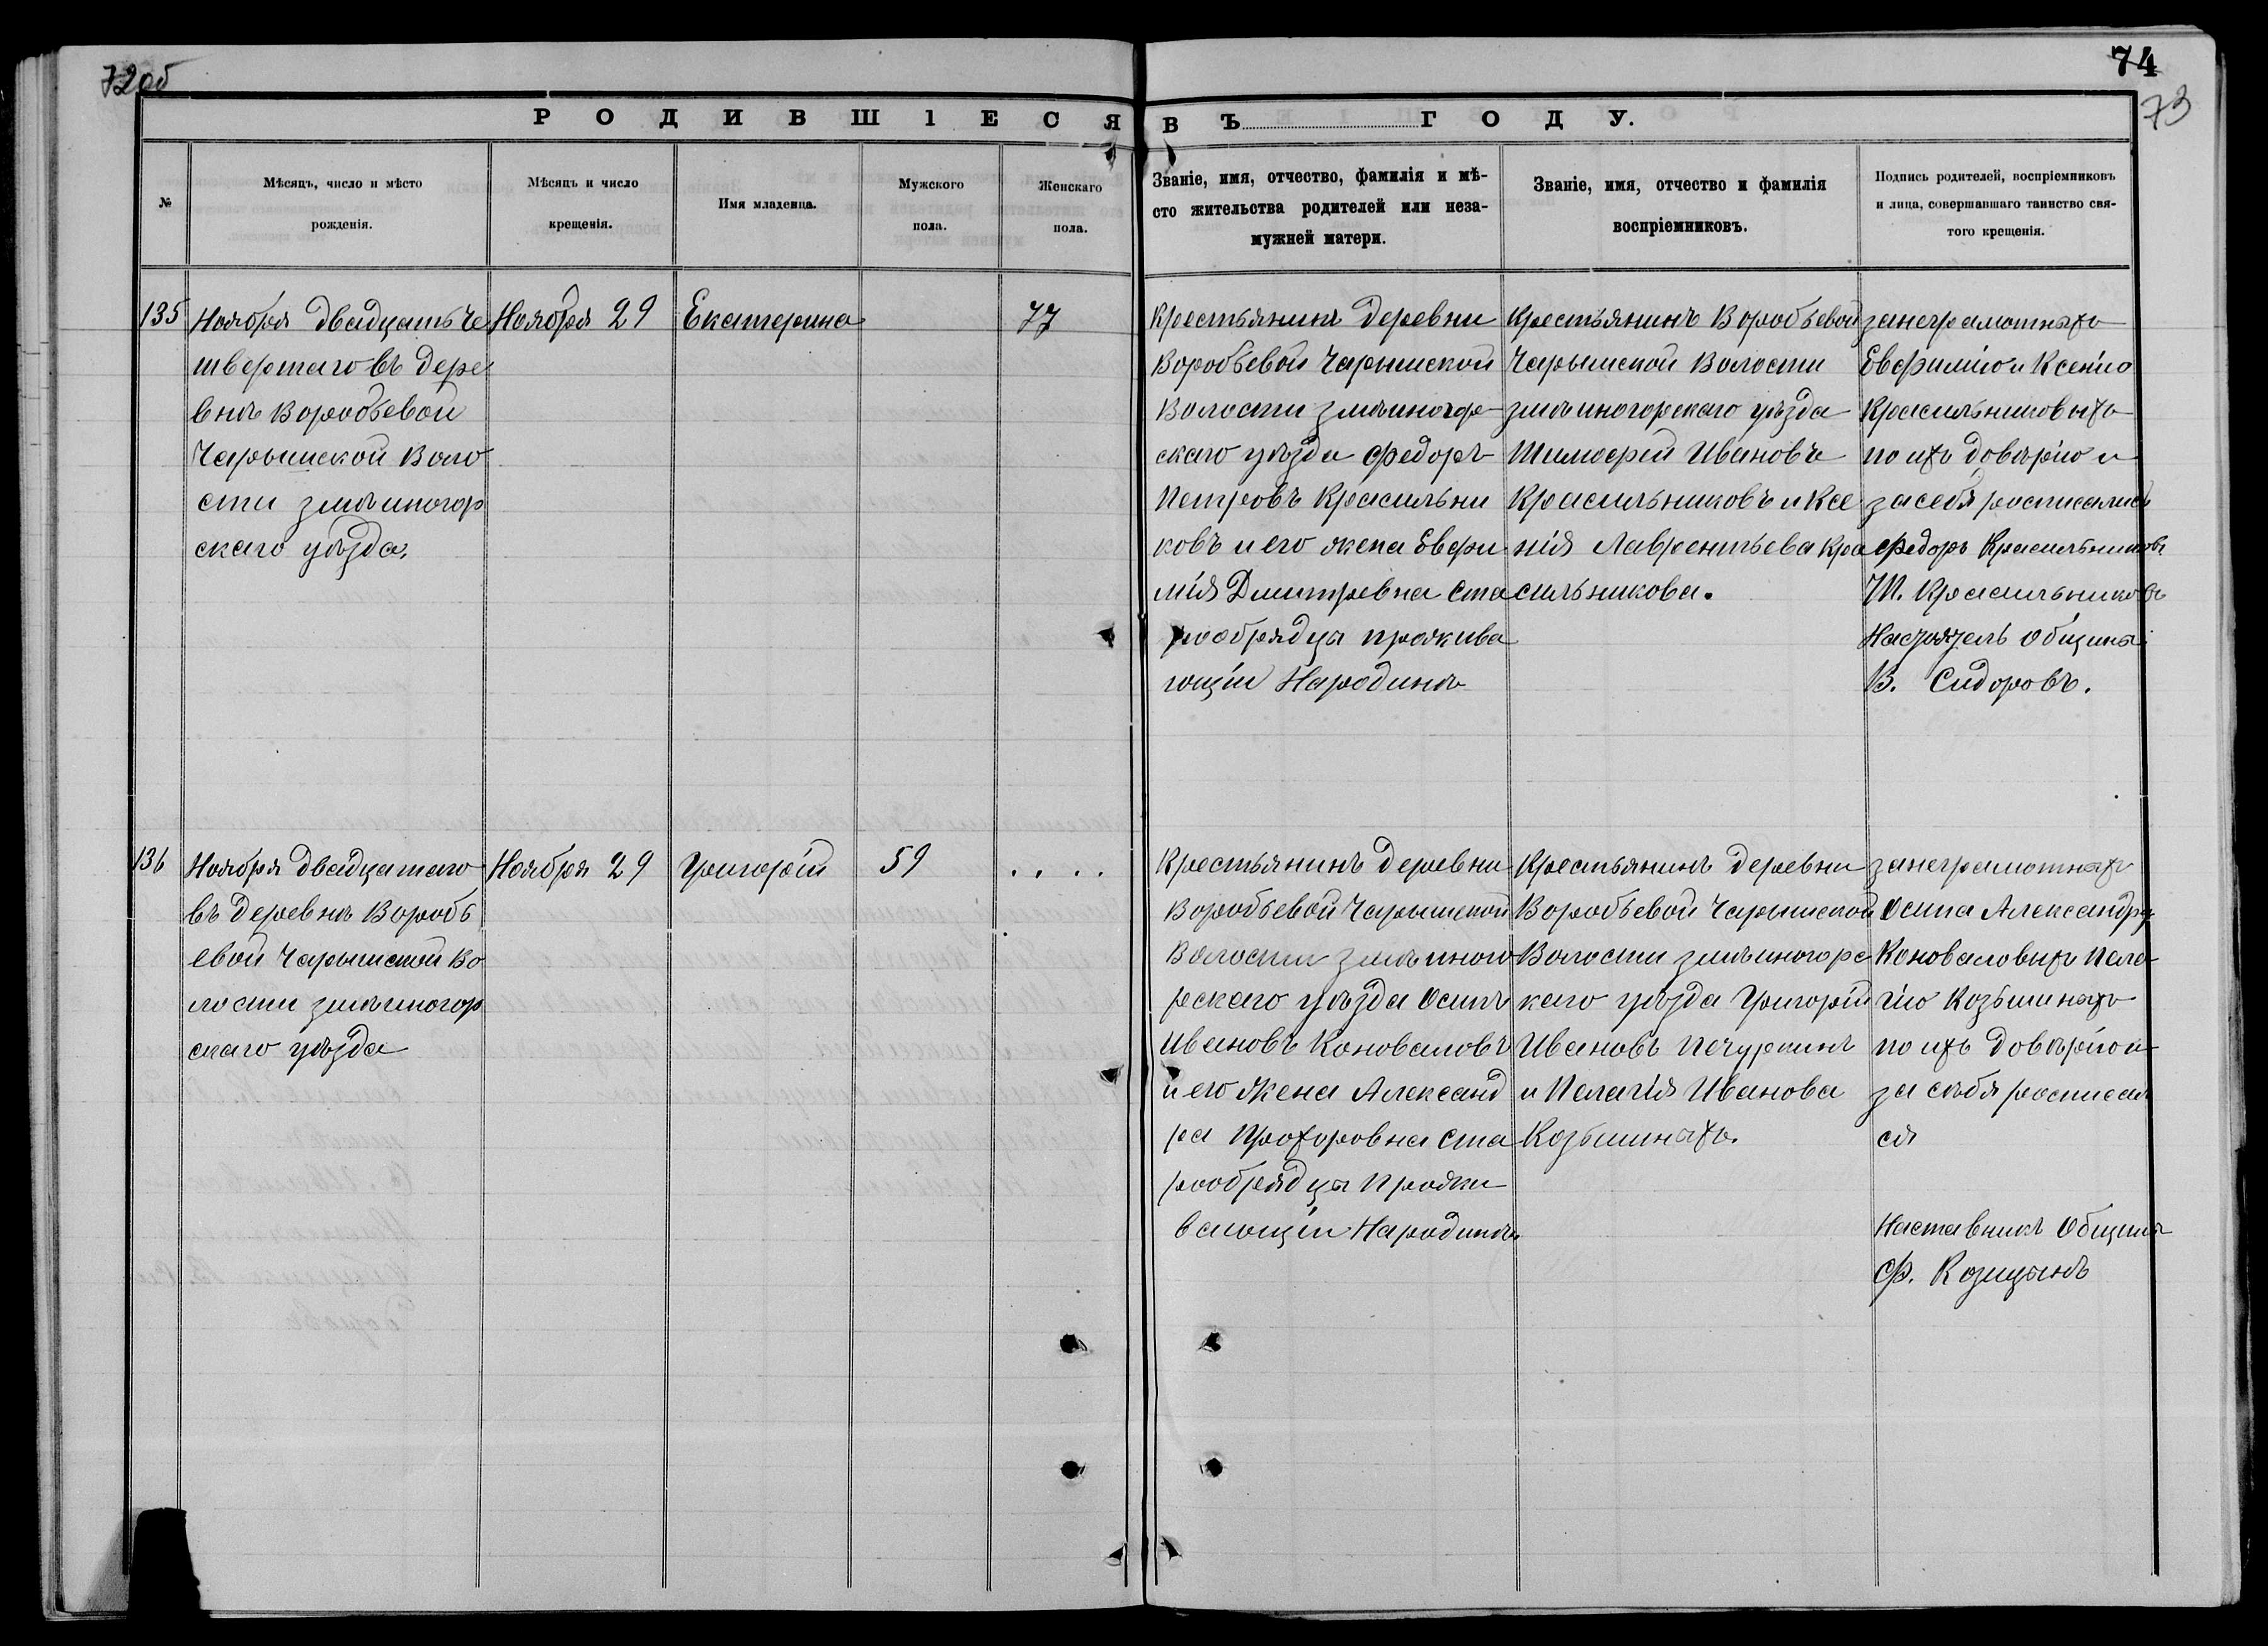 72об
74
73
РОДИВШІЕСЯ ВЪ ГОДУ.
№
Мѣсяцъ, число и мѣсто
рожденія.
Мѣсяцъ и число
крещенія.
Имя младенца.
Мужского
пола.
Женскаго
пола.
Званіе, имя, отчество, фамилія и мѣ-
сто жительства родителей или неза-
мужней матери.
Званіе, имя, отчество и фамилія
воспріемниковъ.
Подпись родителей, воспріемниковъ
и лица, совершавшаго таинство свя-
того крещенія.
135
Ноября двадцать че
твертаго въ дере
внѣ Воробьевой
Чарышской Воло
сти змѣиногор
скаго уѣзда.
Ноября 29
Екатерина
77
Крестьянинъ деревни
Воробьевой Чарышской
Волости змѣиногор
скаго уѣзда Федоръ
Петровъ Красильни
ковъ и его жена Евфи
мія Дмитревна ста
рообрядцы прожива
ющіи Народинѣ
Крестьянинъ Воробьевой
Чарышской Волости
змѣиногорскаго уѣзда
Тимофей Ивановъ
Красильниковъ и Ксе
нія Лаврентьева Кра
сильникова.
занеграмотныхъ
Евфимію и Ксенію
Красильниковыхъ
по ихъ довѣрію и
засебя росписались
Федоръ Красильниковъ
Т. Красильниковъ
Настоятель общины
В. Сидоровъ.
136
Ноября двадцатаго
въ деревнѣ Воробь
евой Чарышской Во
лости змѣиногор
скаго уѣзда
Ноября 29
Григорій
59
. . . .
Крестьянинъ деревни
Воробьевой Чарышской
Волости змѣиного
рскаго уѣзда Осипъ
Ивановъ Коноваловъ
и его жена Александ
ра Прохоровна ста
рообрядцы Прожи
вающіи Народинѣ.
Крестьянинъ деревни
Воробьевой Чарышской
Волости змѣиногорс
каго уѣзда Григорій
Ивановъ Печуркинъ
и Пелагія Иванова
Козьминыхъ.
занеграмотныхъ
Осипа Александру
Коноваловыхъ Пела
гію Козьминыхъ
по ихъ довѣрію и
за себя росписал
ся
Наставникъ Общины
Ф. Козицынъ